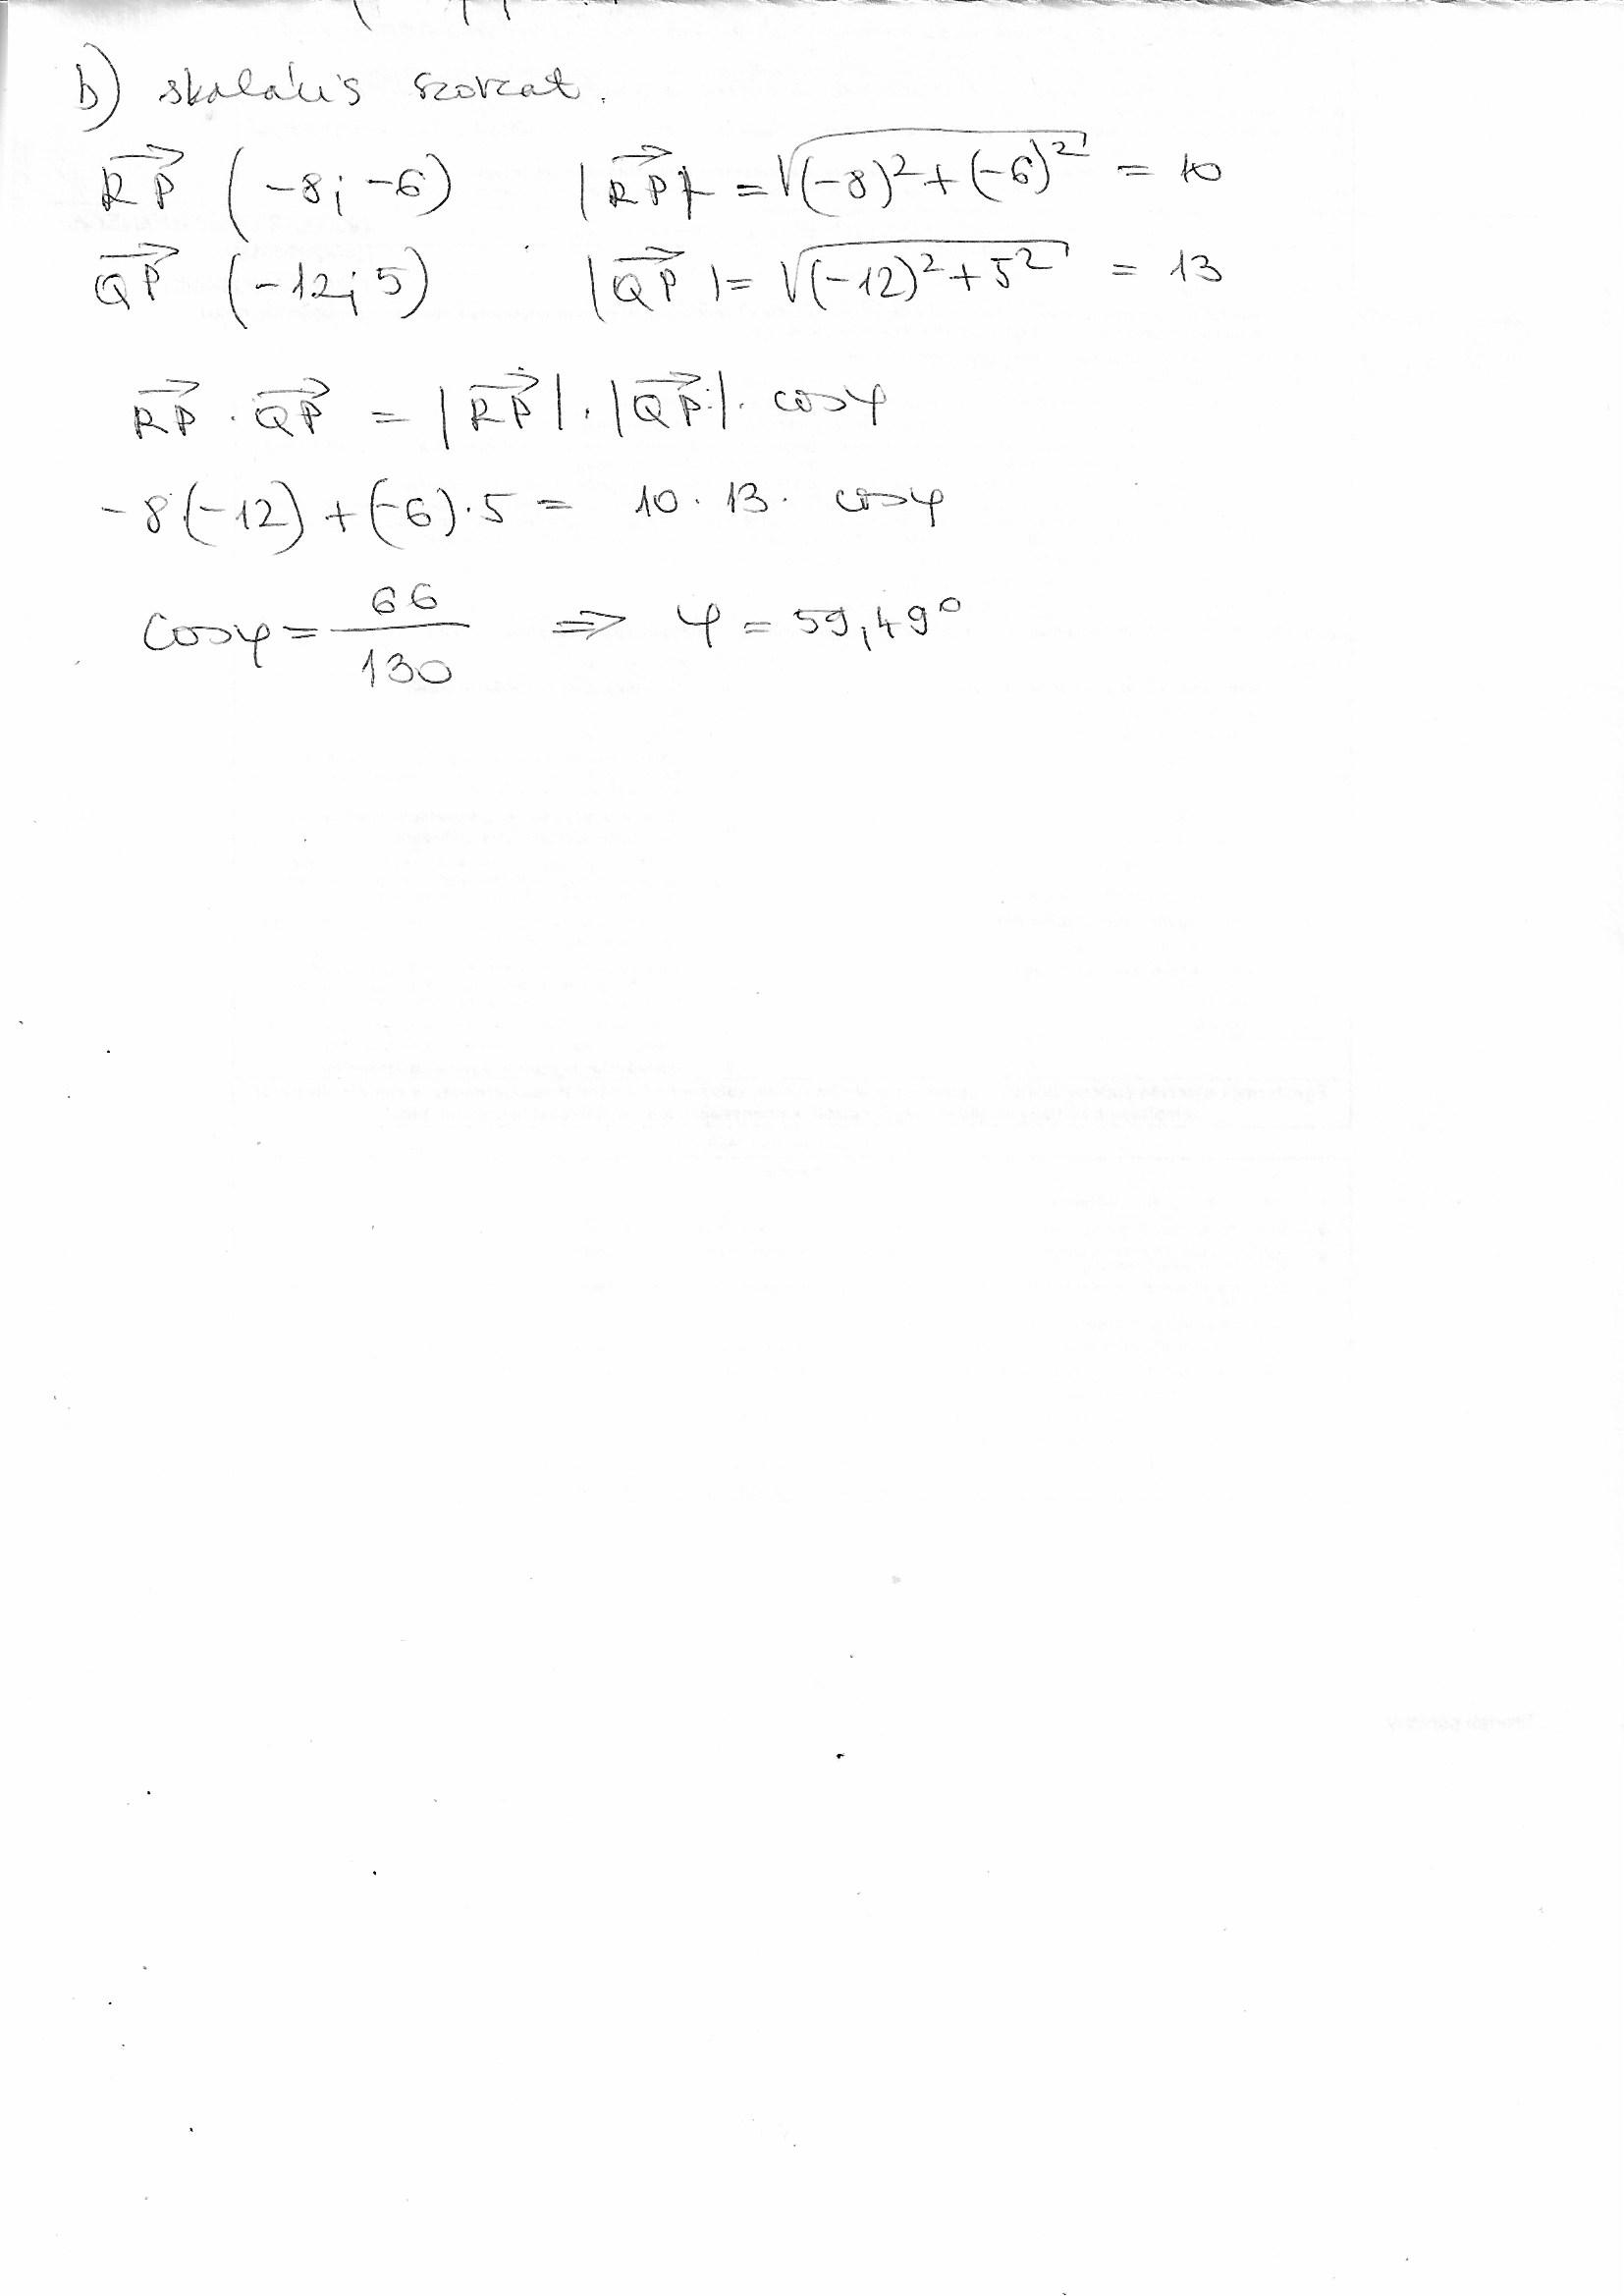 b) skaláris szorzat.
$\overrightarrow{RP}$ (-8; -6) $|\overrightarrow{RP}| = \sqrt{(-8)^2 + (-6)^2} = 10$
$\overrightarrow{QP}$ (-12; 5) $|\overrightarrow{QP}| = \sqrt{(-12)^2 + 5^2} = 13$
$\overrightarrow{RP} \cdot \overrightarrow{QP} = |\overrightarrow{RP}| \cdot |\overrightarrow{QP}| \cdot \cos\varphi$
$-8(-12) + (-6) \cdot 5 = 10 \cdot 13 \cdot \cos\varphi$
$\cos\varphi = \frac{66}{130} \Rightarrow \varphi = 59,49°$